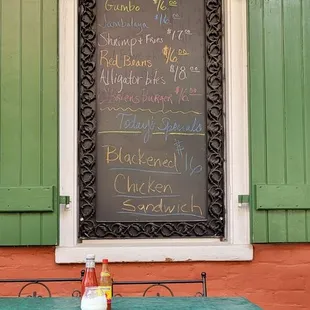 Gumbo $16
Jambalaya $16
Shrimp + Fries $17
Red Beans $16
Alligator bites $18
Orleans Burger $16
Today's Specials
Blackened $16
Chicken
Sandwich